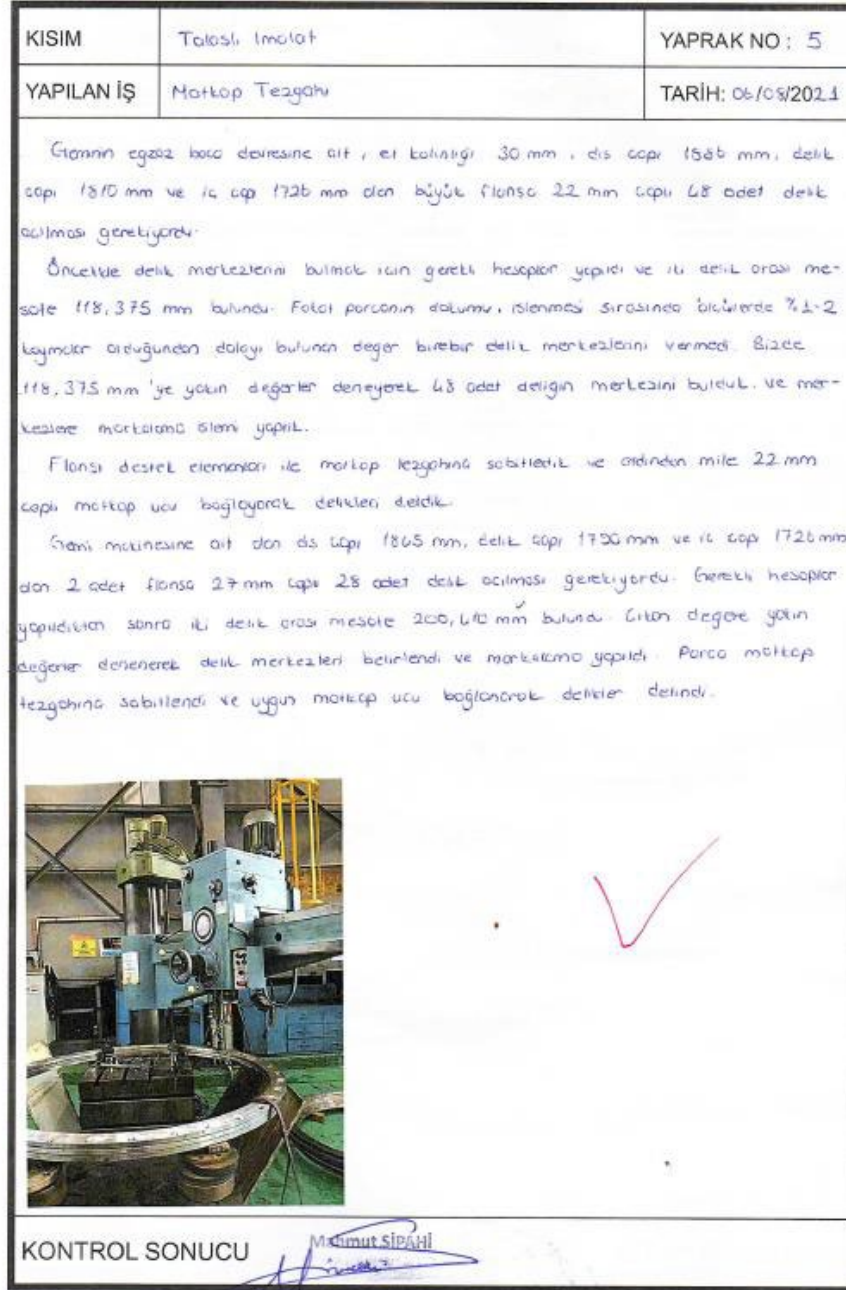 KISIM Talaşlı İmalat YAPRAK NO : 5
YAPILAN İŞ Matkap Tezgahı TARİH: 06/08/2021
Geminin egzoz baca devresine ait, et kalınlığı 30 mm, dış çapı mm, delik
çapı 1810 mm ve iç çap 1726 mm olan büyük flanşa 22 mm çaplı 48 adet delik
açılması gerekiyordu.
Öncelikle delik merkezlerini bulmak için gerekli hesaplar yapıldı ve iki delik arası me-
safe 118,375 mm bulundu. Fakat parçanın dökümü, işlenmesi sırasında ölçülerde %1-2
kaymalar olduğundan dolayı bulunan değer birebir delik merkezlerini vermedi. Bizde
118,375 mm 'ye yakın değerler deneyerek 48 adet deliğin merkezini bulduk. ve mer-
kezlere markalama işlemi yaptık.
Flanşı destek elemanları ile matkap tezgahına sabitledik ve ardından mile 22 mm
çaplı matkap ucu bağlayarak delikleri deldik.
Gemi makinesine ait olan dış çapı 1865 mm, delik çapı mm ve iç çap 1726 mm
olan 2 adet flanşa 27 mm çaplı 28 adet delik açılması gerekiyordu. Gerekli hesaplar
yapıldıktan sonra iki delik arası mesafe mm bulundu. Çıkan değere yakın
değerler denenerek delik merkezleri belirlendi ve markalama yapıldı. Parça matkap
tezgahına sabitlendi ve uygun matkap ucu bağlanarak delikler delindi.
KONTROL SONUCU Mahmut SİPAHİ